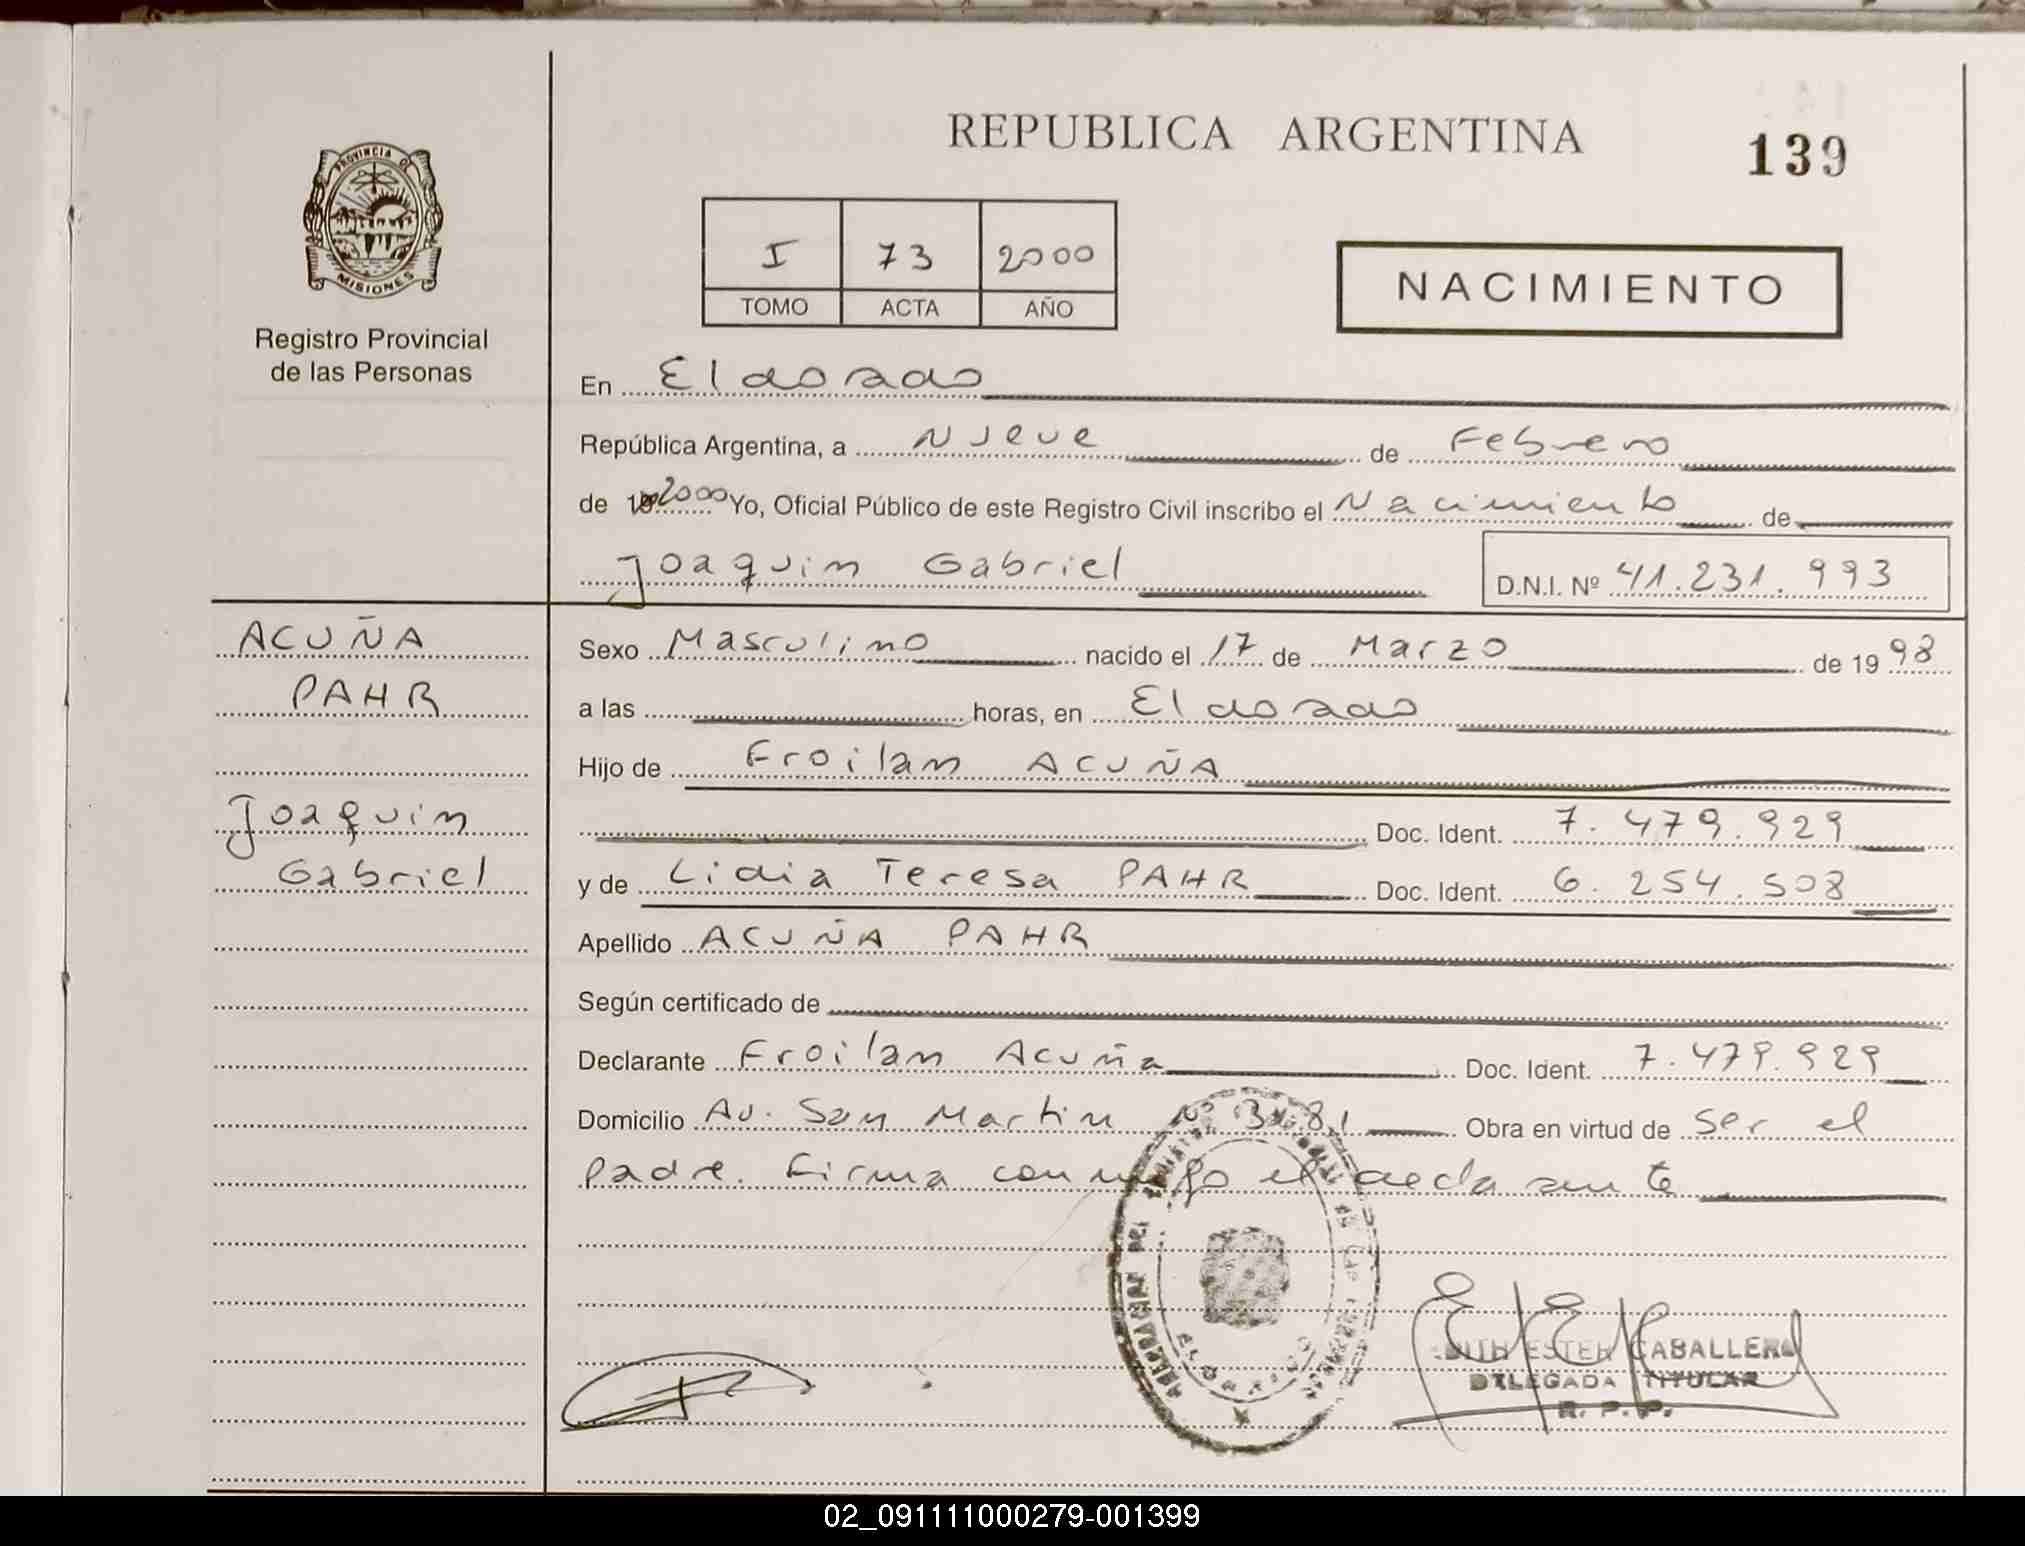 REPUBLICA ARGENTINA
139
PROVINCIA DE
MISIONES
Registro Provincial
de las Personas
I 73 2000
TOMO ACTA AÑO
NACIMIENTO
En Eldorado
República Argentina, a Nueve de Febrero
de 2000 Yo, Oficial Público de este Registro Civil inscribo el Nacimiento de
Joaquin Gabriel D.N.I. Nº 41.231.993
ACUÑA
PAHR
Joaquin
Gabriel
Sexo Masculino nacido el 17 de Marzo de 1998
a las horas, en Eldorado
Hijo de Froilan ACUÑA
Doc. Ident. 7.479.929
y de Lidia Teresa PAHR Doc. Ident. 6.254.508
Apellido ACUÑA PAHR
Según certificado de
Declarante Froilan Acuña Doc. Ident. 7.479.929
Domicilio Av. San Martin Nº Obra en virtud de ser el
padre. Firma conmigo el declarante
ESTER CABALLERO
DELEGADA TITULAR
R. P. P.
ELDORADO
02_091111000279-001399